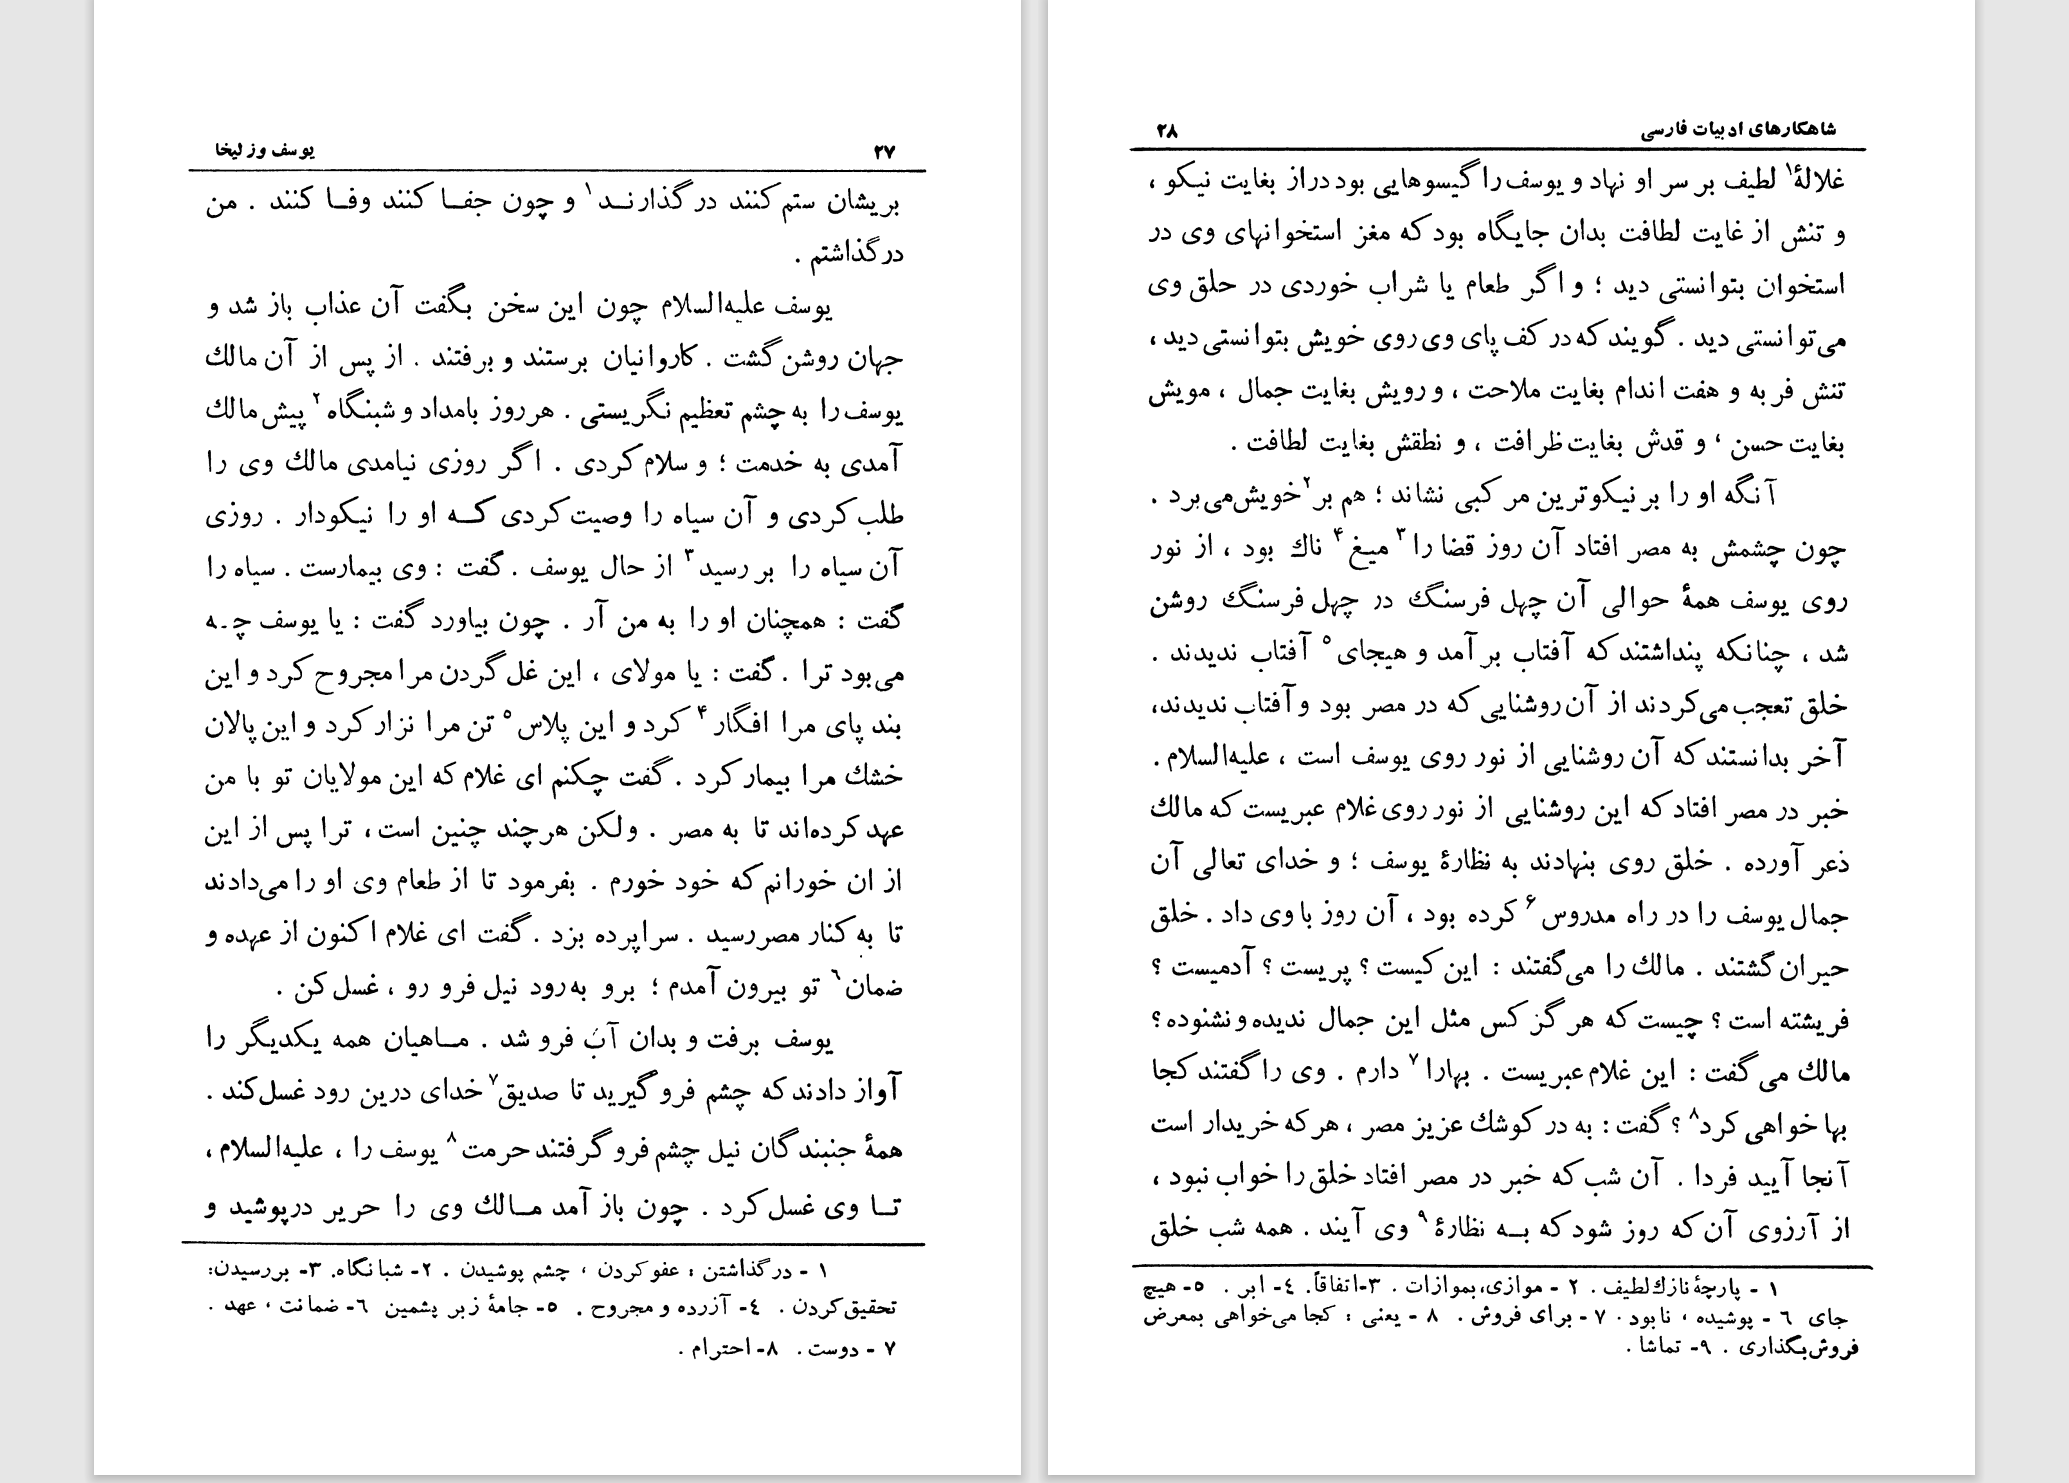 ۲۷ یوسف و زلیخا
بریشان ستم کنند درگذارنـد۱ و چون جفـا کنند وفـا کنند . من
درگذاشتم .
یوسف علیه‌السلام چون این سخن بگفت آن عذاب باز شد و
جهان روشن گشت . کاروانیان برستند و برفتند . از پس از آن مالك
یوسف را به چشم تعظیم نگریستی . هر روز بامداد و شبنگاه۲ پیش مالك
آمدی به خدمت ؛ و سلام کردی . اگر روزی نیامدی مالك وی را
طلب کردی و آن سیاه را وصیت کردی کـه او را نیکودار . روزی
آن سیاه را بررسید۳ از حال یوسف . گفت : وی بیمارست . سیاه را
گفت : همچنان او را به من آر . چون بیاورد گفت : یا یوسف چـه
می‌بود ترا . گفت : یا مولای ، این غل گردن مرا مجروح کرد و این
بند پای مرا افگار۴ کرد و این پلاس۵ تن مرا نزار کرد و این پالان
خشك مرا بیمار کرد . گفت چکنم ای غلام که این مولایان تو با من
عهد کرده‌اند تا به مصر . ولکن هرچند چنین است، ترا پس از این
از ان خورانم که خود خورم . بفرمود تا از طعام وی او را می‌دادند
تا به کنار مصر رسید . سراپرده بزد . گفت ای غلام اکنون از عهده و
ضمان۶ تو بیرون آمدم ؛ برو به رود نیل فرو رو ، غسل کن .
یوسف برفت و بدان آب فرو شد . مـاهیان همه یکدیگر را
آواز دادند که چشم فرو گیرید تا صدیق۷ خدای درین رود غسل کند .
همهٔ جنبندگان نیل چشم فرو گرفتند حرمت۸ یوسف را ، علیه‌السلام ،
تـا وی غسل کرد . چون باز آمد مـالك وی را حریر درپوشید و
۱ - درگذاشتن : عفو کردن ، چشم پوشیدن . ۲- شبانگاه. ۳- بررسیدن:
تحقیق کردن . ٤- آزرده و مجروح . ۵- جامهٔ زبر پشمین ٦- ضمانت ، عهد .
۷ - دوست . ۸- احترام .
۲۸ شاهکارهای ادبیات فارسی
غلالهٔ۱ لطیف بر سر او نهاد و یوسف را گیسوهایی بود دراز بغایت نیکو ،
و تنش از غایت لطافت بدان جایگاه بود که مغز استخوانهای وی در
استخوان بتوانستی دید ؛ و اگر طعام یا شراب خوردی در حلق وی
می‌توانستی دید . گویند که در کف پای وی روی خویش بتوانستی دید ،
تنش فربه و هفت اندام بغایت ملاحت ، و رویش بغایت جمال ، مویش
بغایت حسن ، و قدش بغایت ظرافت ، و نطقش بغایت لطافت .
آنگه او را بر نیکوترین مرکبی نشاند ؛ هم بر۲ خویش می‌برد .
چون چشمش به مصر افتاد آن روز قضا را۳ میغ۴ ناك بود ، از نور
روی یوسف همهٔ حوالی آن چهل فرسنگ در چهل فرسنگ روشن
شد ، چنانکه پنداشتند که آفتاب برآمد و هیجای۵ آفتاب ندیدند .
خلق تعجب می‌کردند از آن روشنایی که در مصر بود و آفتاب ندیدند،
آخر بدانستند که آن روشنایی از نور روی یوسف است ، علیه‌السلام.
خبر در مصر افتاد که این روشنایی از نور روی غلام عبریست که مالك
ذعر آورده . خلق روی بنهادند به نظارهٔ یوسف ؛ و خدای تعالی آن
جمال یوسف را در راه مدروس۶ کرده بود ، آن روز با وی داد . خلق
حیران گشتند . مالك را می‌گفتند : این کیست ؟ پریست ؟ آدمیست ؟
فریشته است ؟ چیست که هرگز کس مثل این جمال ندیده و نشنوده؟
مالك می گفت : این غلام عبریست . بهارا۷ دارم . وی را گفتند کجا
بها خواهی کرد۸ ؟ گفت : به در کوشك عزیز مصر ، هرکه خریدار است
آنجا آیید فردا . آن شب که خبر در مصر افتاد خلق را خواب نبود ،
از آرزوی آن که روز شود که بـه نظارهٔ۹ وی آیند . همه شب خلق
۱ - پارچهٔ نازك لطیف . ۲ - موازی، بموازات . ۳-اتفاقاً. ٤- ابر . ۵- هیچ
جای ٦ - پوشیده ، نابود . ۷ - برای فروش . ۸ - یعنی : کجا می‌خواهی بمعرض
فروش بگذاری . ۹- تماشا .